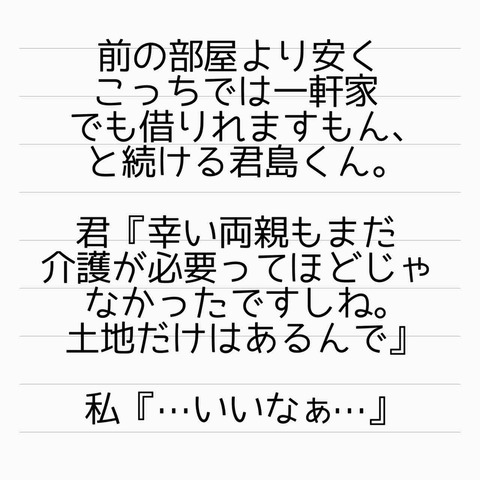 前の部屋より安く
こっちでは一軒家
でも借りれますもん、
と続ける君島くん。
君『幸い両親もまだ
介護が必要ってほどじゃ
なかったですしね。
土地だけはあるんで』
私『…いいなぁ…』